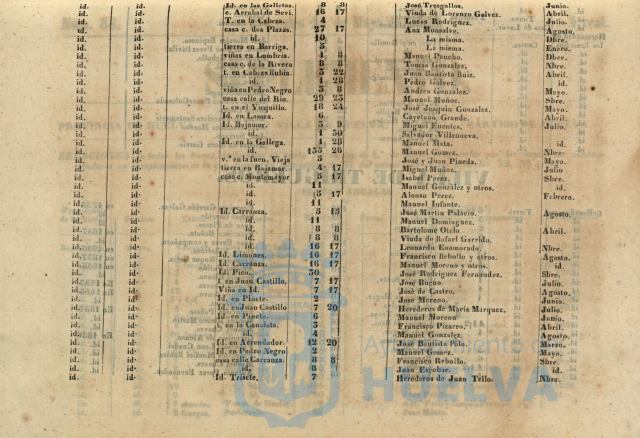 id. id. Id. en las Galletas. 8 8 José Tresgallos. Junio.
id. id. c. Arrabal de Sevi. 16 17 Viuda de Lorenzo Galvez. Abril.
id. id. T. en la Cabeza. 4 Lucas Rodriguez. Julio.
id. id. casa c. dos Plazas. 27 17 Ana Monsalve. Agosto.
id. id. id. 10 La misma. Dbre.
id. id. tierra en Barriga. 5 La misma. Enero.
id. id. viñas en Lombria. 1 8 Manuel Pancho. Dbre.
id. id. casa c. de la Rivera 8 8 Tomas Gonzalez. Nbre.
id. id. t. en Cabeza Rubia. 5 22 Juan Bautista Ruiz. Abril.
id. id. id. 1 28 Pedro Galvez. id.
id. id. viña en Pedro Negro 5 8 Andrea Gonzalez. Mayo.
id. id. casa calle del Rio. 29 25 Manuel Muñoz. Sbre.
id. id. t. en el Visquillo. 18 24 José Joaquin Gonzalez. Mayo.
id. id. Id. en Lanera. 6 Cayetano Grande. Abril.
id. id. Id. Bajamar. 5 9 Miguel Fuentes. Julio.
id. id. id. 1 30 Salvador Villanueva.
id. id. Id. en la Gallega. 1 28 Manuel Mata. id.
id. id. id. 135 26 Manuel Gomez. Nbre.
id. id. v.ª en la fuen. Vieja 5 José y Juan Pineda. Mayo.
id. id. tierra en Bajamar. 4 17 Miguel Muñoz. Julio
id. id. casa c. Montemayor 5 17 Isabel Perez. Sbre.
id. id. id. 11 Manuel Gonzalez y otros. id.
id. id. id. 5 17 Alonso Perez. Febrero.
id. id. id. 11 Manuel Infante.
id. id. Id. Carranza. 5 13 José Martin Palacio. Agosto.
id. id. id. 11 Manuel Dominguez.
id. id. id. 8 8 Bartolomé Otelo Abril.
id. id. id. 8 8 Viuda de Rafael Garrido.
id. id. id. 16 17 Leonardo Enamorado. Nbre.
id. id. Id. Limones. 16 17 Francisco Rebollo y otros. Agosto.
id. id. Id. Carranza. 16 17 Manuel Moreno y otros. id.
id. id. Id. Pico. 30 José Rodriguez Fernandez. Sbre.
id. id. t. en Juan Castillo. 7 17 José Bueno Julio.
id. id. Viña en Id. 7 17 José de Castro. Agosto.
id. id. Id. en Pinete. 2 José Moreno. Junio.
id. id. t. en Juan Castillo 7 20 Herederos de Maria Márquez. Julio.
id. id. Id. en Pinete. 6 Manuel Moreno Junio.
id. id. t. en la Canaleta. 3 Francisco Pizarro. Abril.
id. id. id. 4 Manuel Gonzalez. Agosto.
id. id. Id. en Arrendador. 12 20 José Bautista Polo. Marzo.
id. id. Id. en Pedro Negro 2 Manuel Gomez. Mayo.
id. id. casa calle Carranza. 8 8 Francisco Rebollo. Sbre.
id. id. id. 8 Juan Escobar. id.
id. id. Id. Trisete. 7 Herederos de Juan Tello. Nbre.
HUELVA